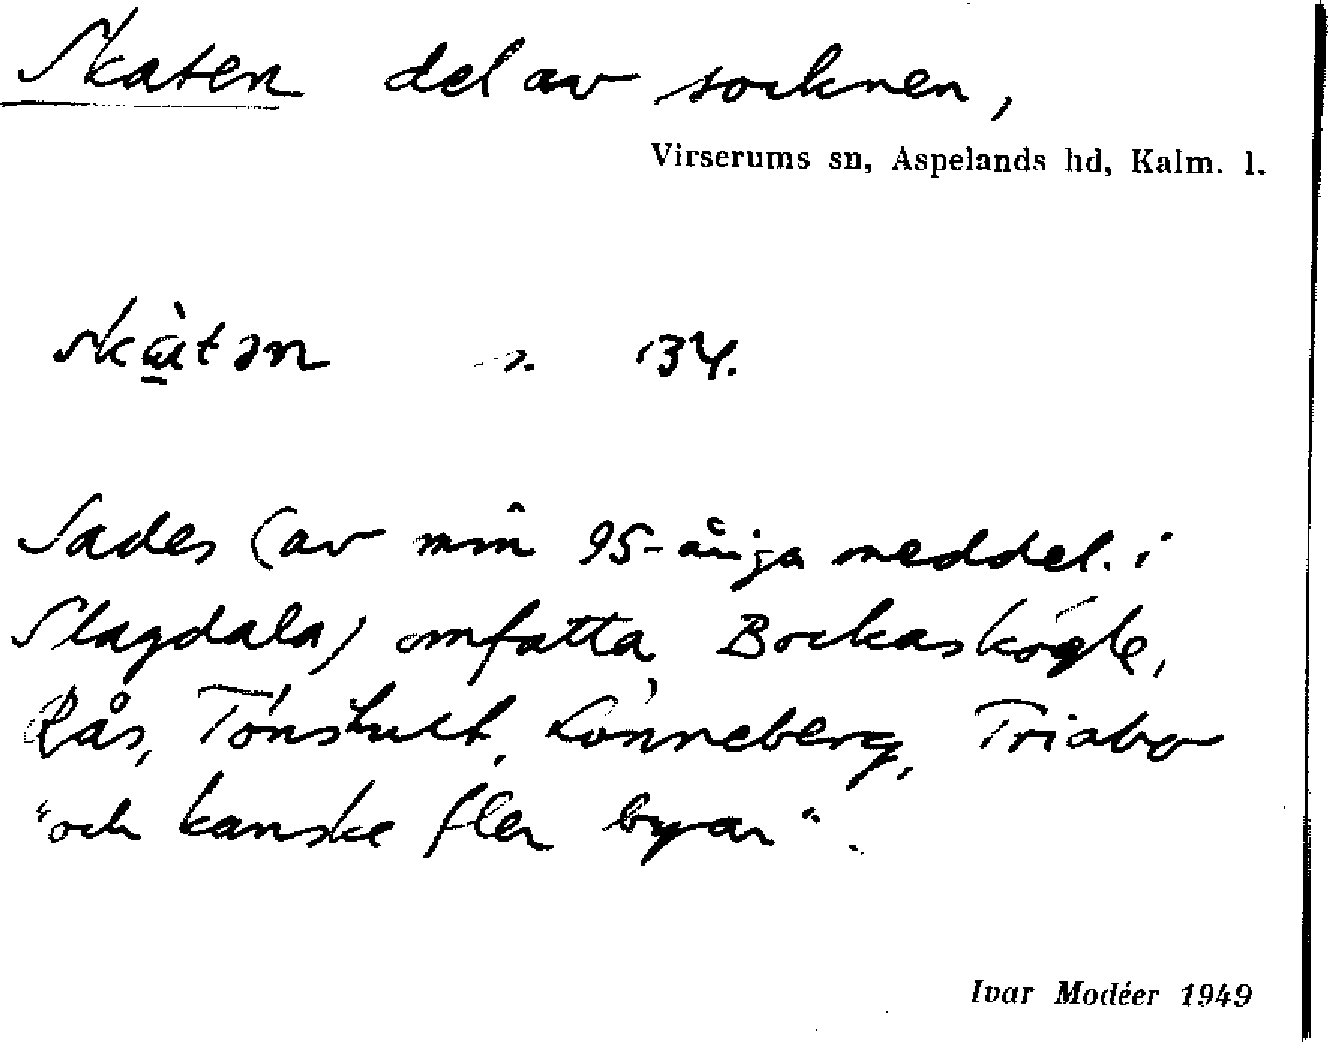 Skaten del av socknen,
Virserums sn, Aspelands hd, Kalm. l.
134.
Sades (av min 95-åriga meddel. i
Slagdala) omfatta Bockaskögle,
Rås, Tönshult, Lönneberg, Triabo
"och kanske fler byar".
Ivar Modéer 1949